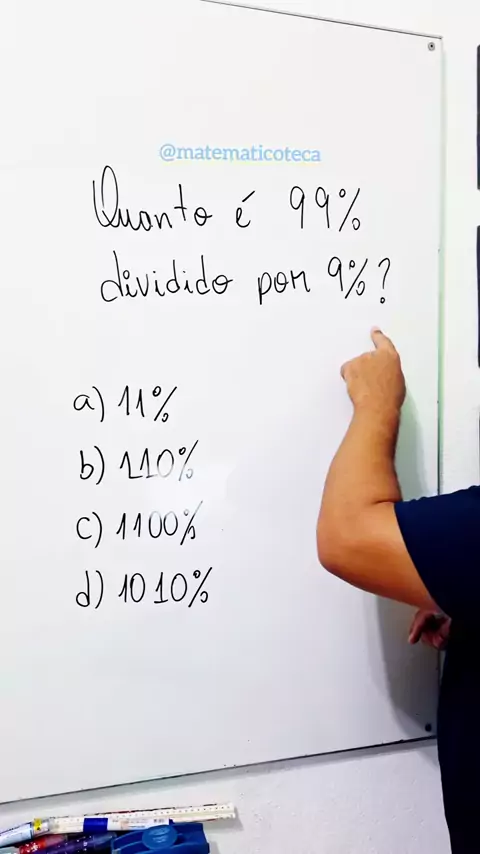 @matematicoteca
Quanto é 99%
dividido por 9%?
a) 11%
b) 110%
c) 1100%
d) 1010%